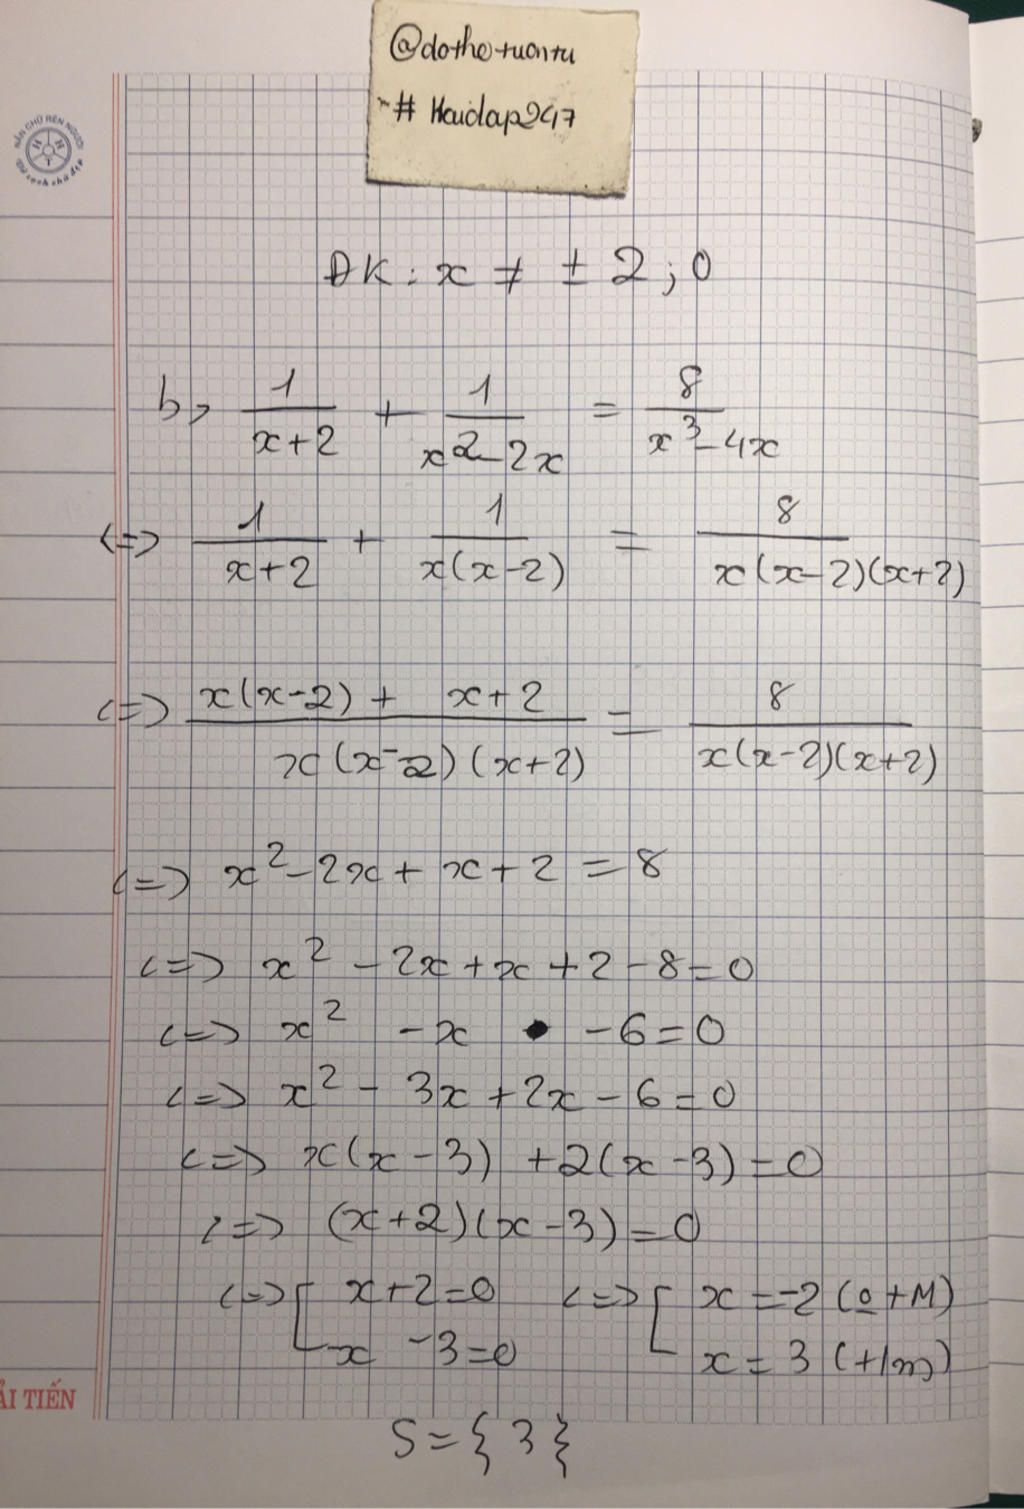 @dothetuantu
# Hoidap247
NÂN CHỮ RÈN NGƯỜI
ĐK: x ≠ ± 2 ; 0
b, 1/(x+2) + 1/(x²-2x) = 8/(x³-4x)
<=> 1/(x+2) + 1/(x(x-2)) = 8/(x(x-2)(x+2))
<=> (x(x-2) + x+2)/(x(x-2)(x+2)) = 8/(x(x-2)(x+2))
<=> x²-2x + x+2 = 8
<=> x² - 2x + x + 2 - 8 = 0
<=> x² - x - 6 = 0
<=> x² - 3x + 2x - 6 = 0
<=> x(x-3) + 2(x-3) = 0
<=> (x+2)(x-3) = 0
<=> [ x+2=0 <=> [ x = -2 (0 +M)
x -3=0 x = 3 (+/m)
S = { 3 }
ẢI TIẾN